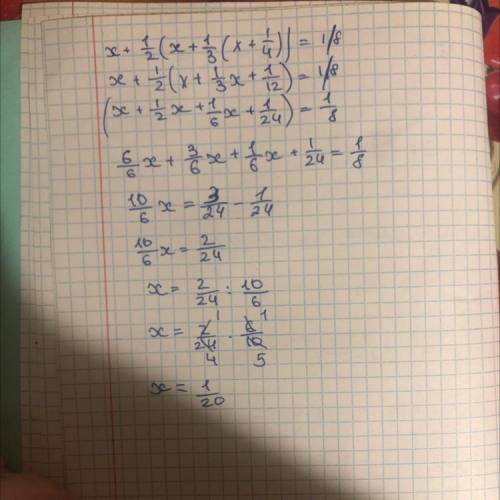 x + 1/2 (x + 1/3 (x + 1/4)) = 1/8
x + 1/2 (x + 1/3 x + 1/12) = 1/8
(x + 1/2 x + 1/6 x + 1/24) = 1/8
6/6 x + 3/6 x + 1/6 x + 1/24 = 1/8
10/6 x = 3/24 - 1/24
10/6 x = 2/24
x = 2/24 : 10/6
x = 2/24 · 6/10
1 1
4 5
x = 1/20